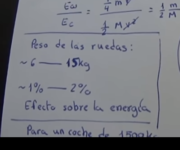 Eω/Ec = 1/4 m v² / 1/2 M v² = 1/2 m/M
Peso de las ruedas:
~ 6 — 15kg
~ 1% — 2%
Efecto sobre la energía
Para un coche de 1500k